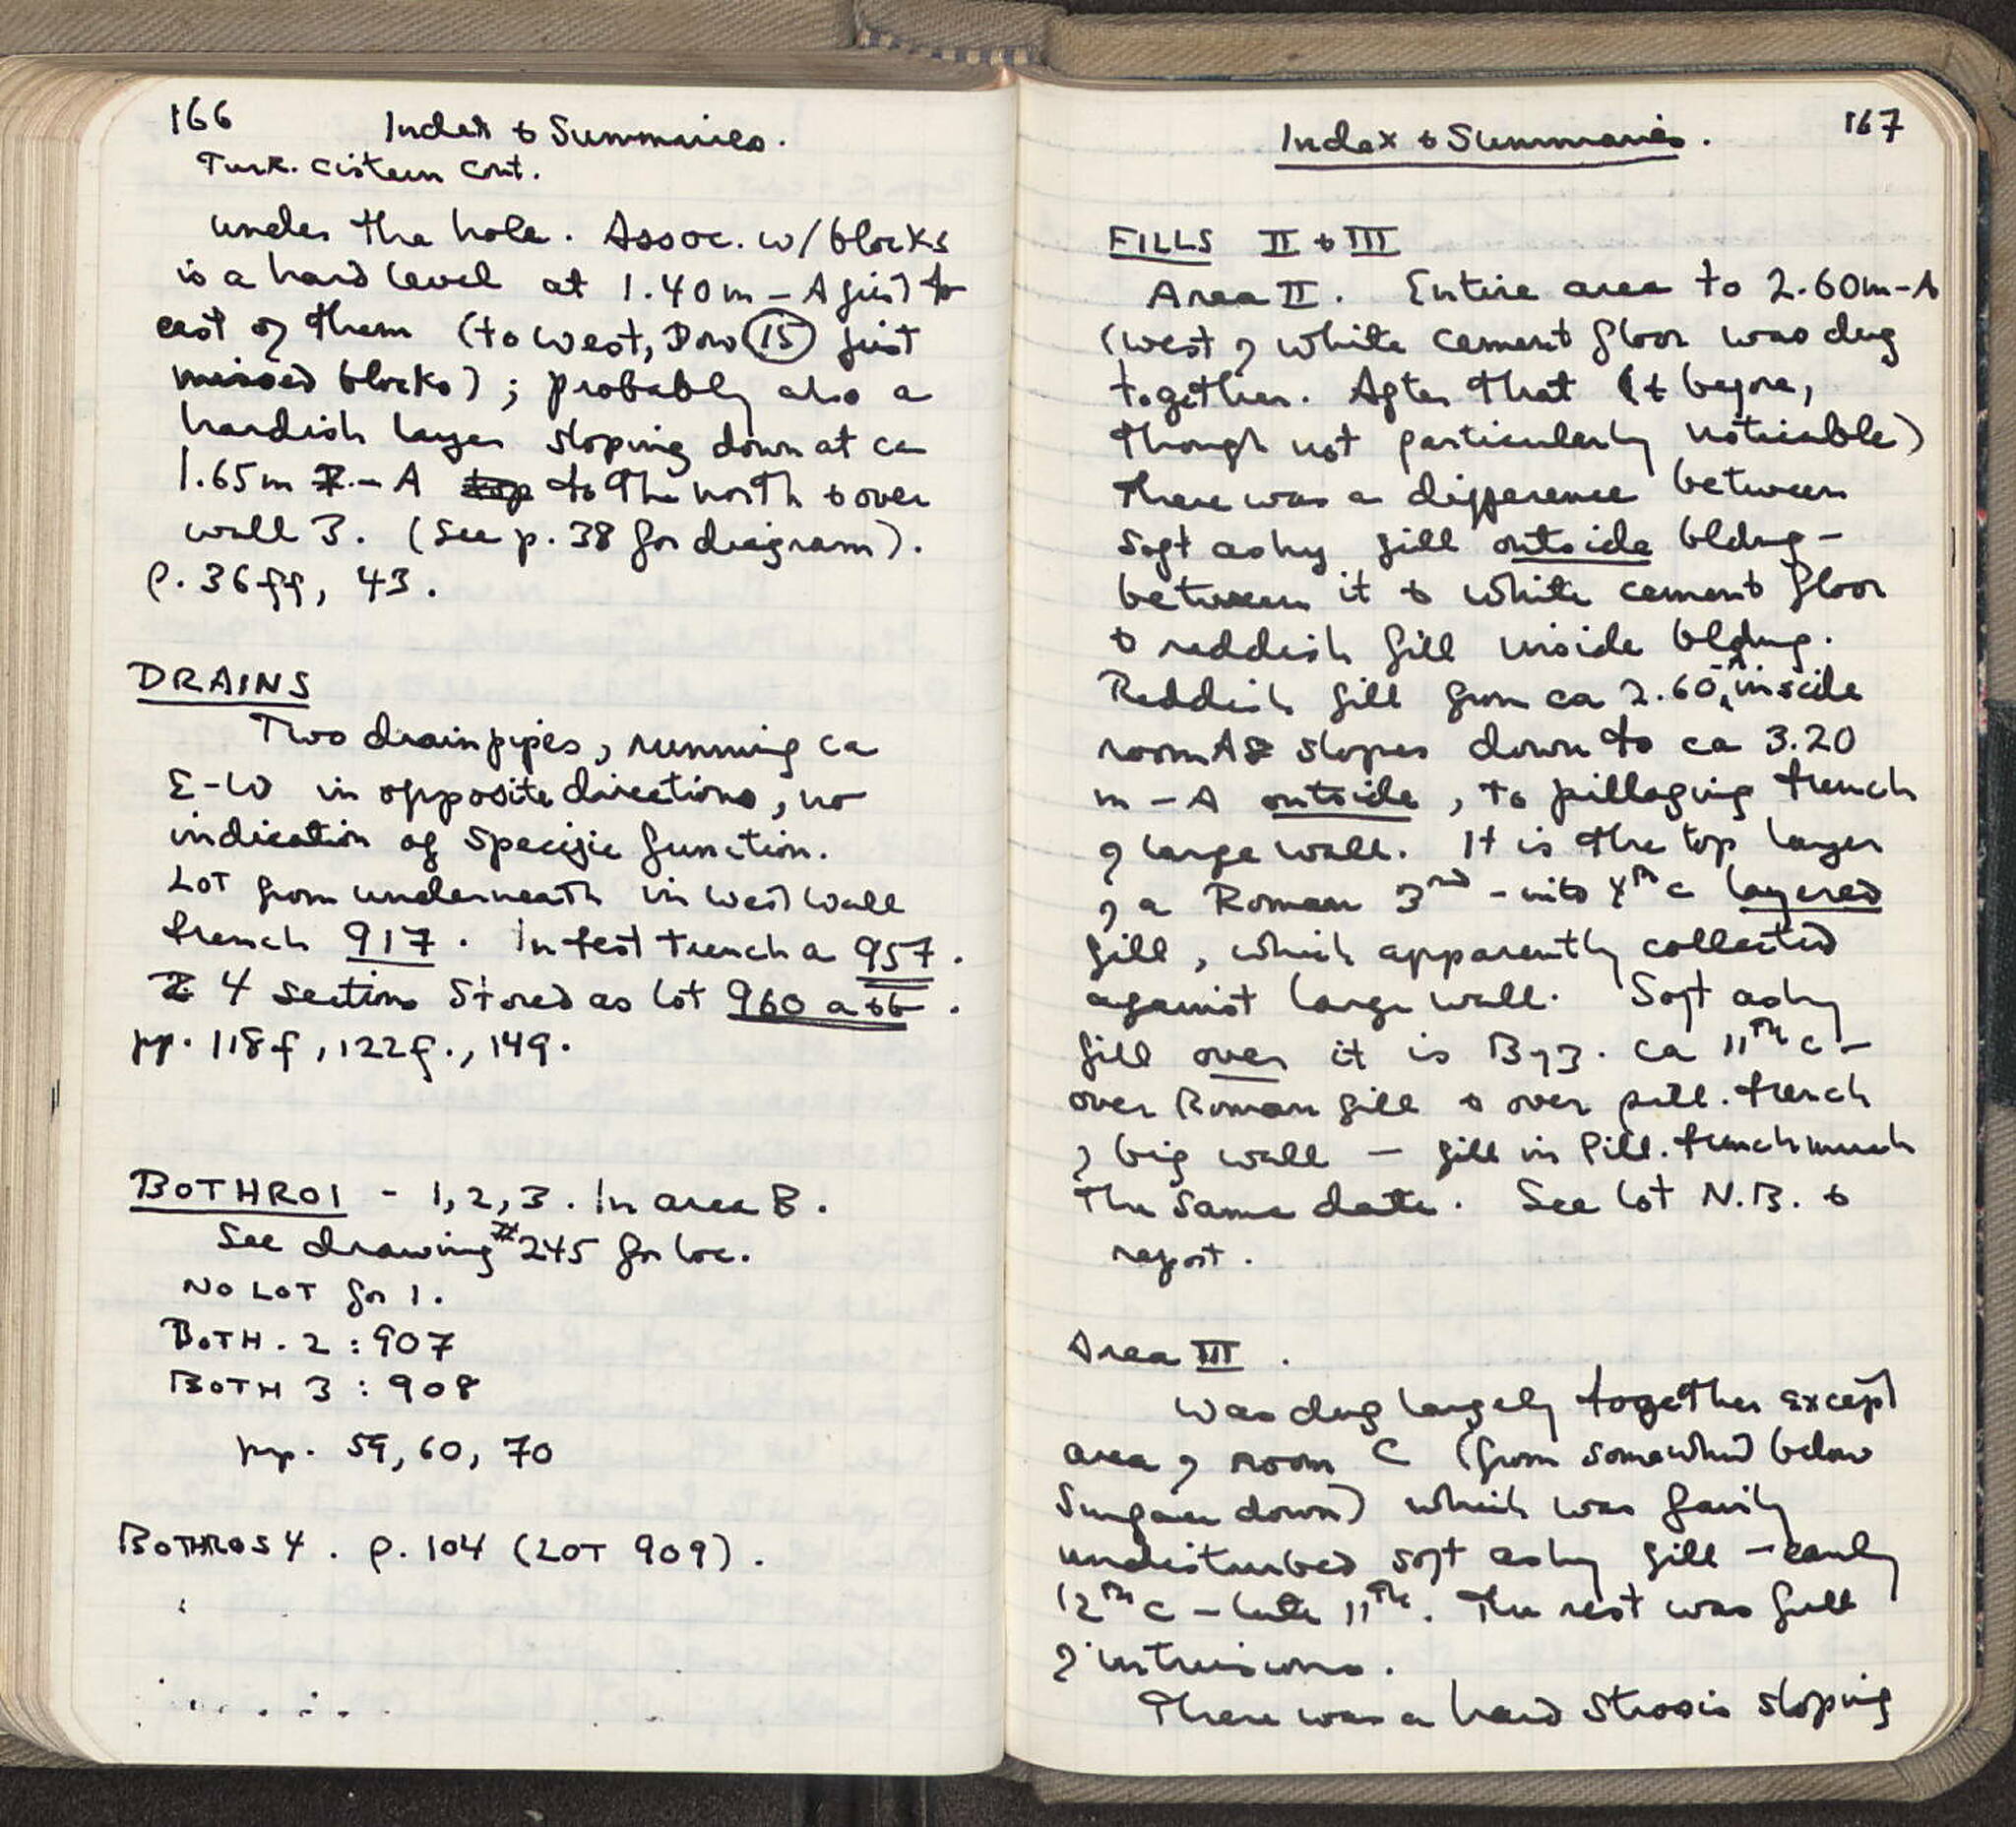 166
Index & Summaries.
Turk. cistern cont.
under the hole. Assoc. w/blocks
is a hard level at 1.40m – A just to
east of them (to west, Dow 15 just
missed blocks) ; probably also a
hardish layer sloping down at ca
1.65m – A to the north & over
wall 3. (See p. 38 for diagram).
P. 36ff, 43.
DRAINS
Two drainpipes, running ca
E-W in opposite directions, no
indication of specific function.
LOT from underneath in west wall
trench 917. In test trench a 957.
4 sections stored as lot 960 a & b.
pp. 118f, 122f., 149.
BOTHROI - 1, 2, 3. In area B.
See drawing #245 for loc.
NO LOT for 1.
BOTH. 2 : 907
BOTH 3 : 908
pp. 59, 60, 70
BOTHROS 4. P. 104 (LOT 909).
167
Index & Summaries.
FILLS II & III
Area II. Entire area to 2.60m-A
(west of white cement floor was dug
together. After that (& before,
though not particularly noticable)
there was a difference between
soft ashy fill outside bldng –
between it & white cement floor
& reddish fill inside bldng.
Reddish fill from ca 2.60 -A inside
room A slopes down to ca 3.20
m – A outside, to pillaging trench
of large wall. It is the top layer
of a Roman 3rd - into 4th c layered
fill, which apparently collected
against large wall. Soft ashy
fill over it is Byz. ca 11th c –
over Roman fill & over pill. trench
of big wall – fill in Pill. trench much
the same date. See lot N.B. &
report.
Area III.
Was dug largely together except
area of room C (from somewhat below
surface down) which was fairly
undisturbed soft ashy fill – early
12th c – late 11th. The rest was full
of intrusions.
There was a hard strosis sloping